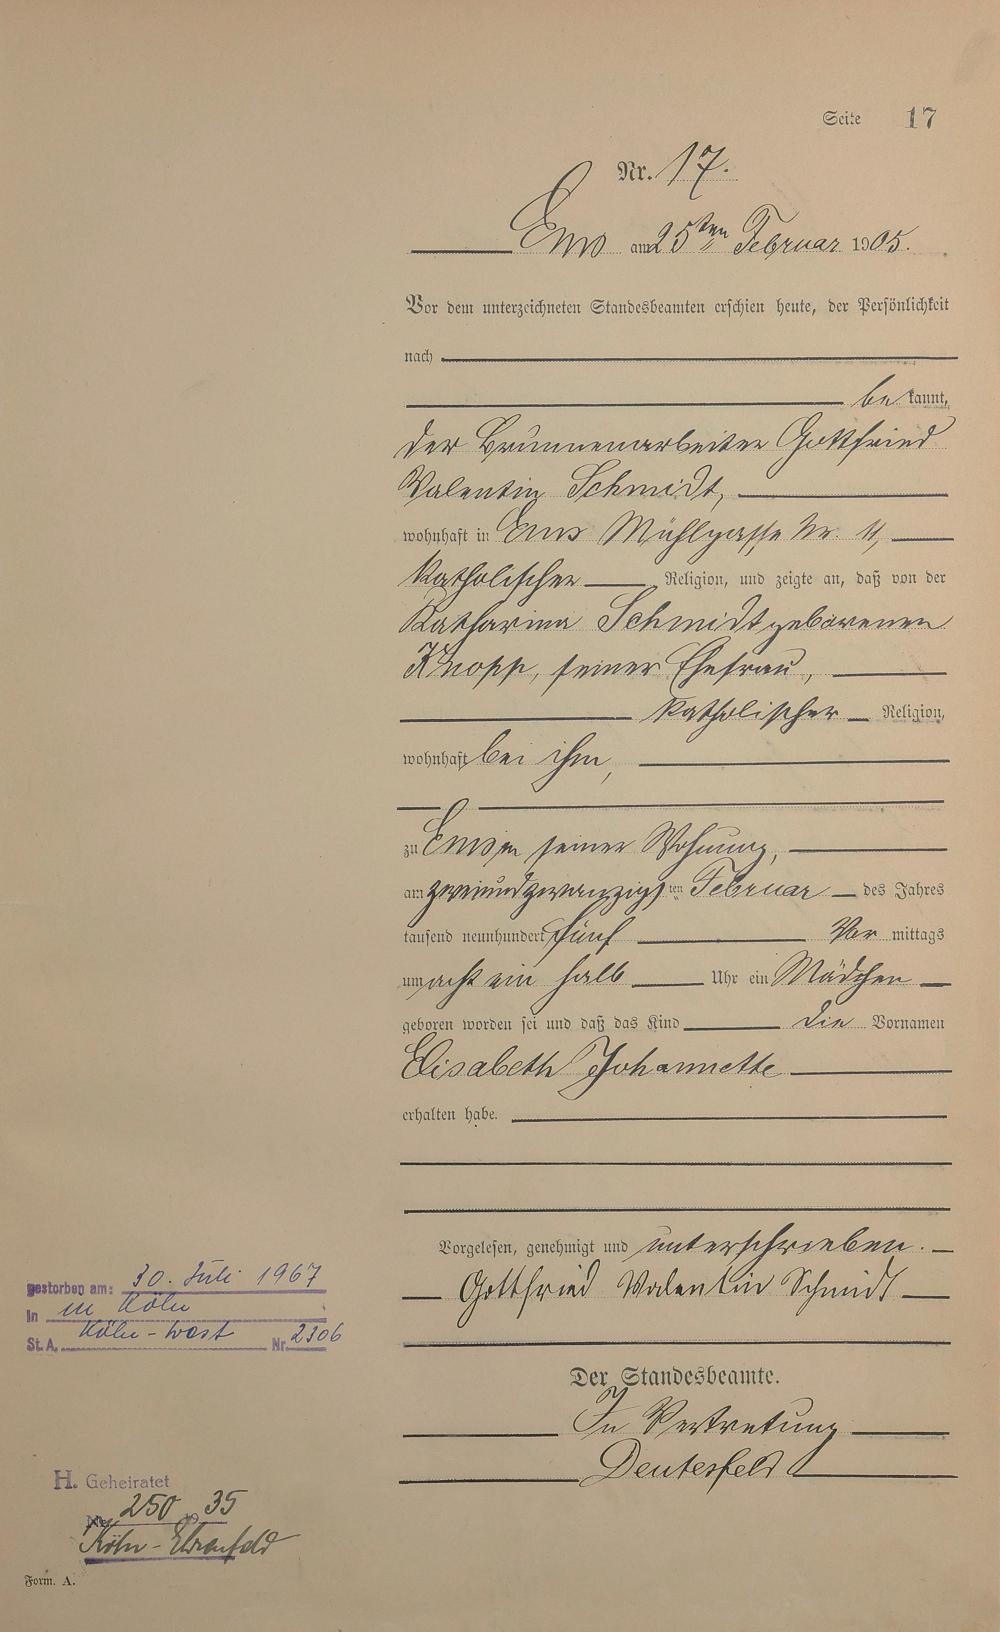 Seite 17
Nr. 17.
Ems am 25ten Februar 1905.
Vor dem unterzeichneten Standesbeamten erschien heute, der Persönlichkeit
nach
be kannt,
der Brunnenarbeiter Gottfried
Valentin Schmidt,
wohnhaft in Ems Mühlgasse Nr. 11,
katholischer Religion, und zeigte an, daß von der
Katharina Schmidt geborenen
Knopp, seiner Ehefrau,
katholischer Religion,
wohnhaft bei ihm,
zu Ems in seiner Wohnung,
am zweiundzwanzigsten Februar des Jahres
tausend neunhundert fünf Vor mittags
um acht ein halb Uhr ein Mädchen
geboren worden sei und daß das Kind die Vornamen
Elisabeth Johannette
erhalten habe.
Vorgelesen, genehmigt und unterschrieben.
Gottfried Valentin Schmidt
Der Standesbeamte.
In Vertretung
Deutesfeld
gestorben am: 30. Juli 1967
In in Köln
St. A. Köln-West Nr. 2306
H. Geheiratet
Nr. 250 19 35
Köln-Ehrenfeld
Form. A.